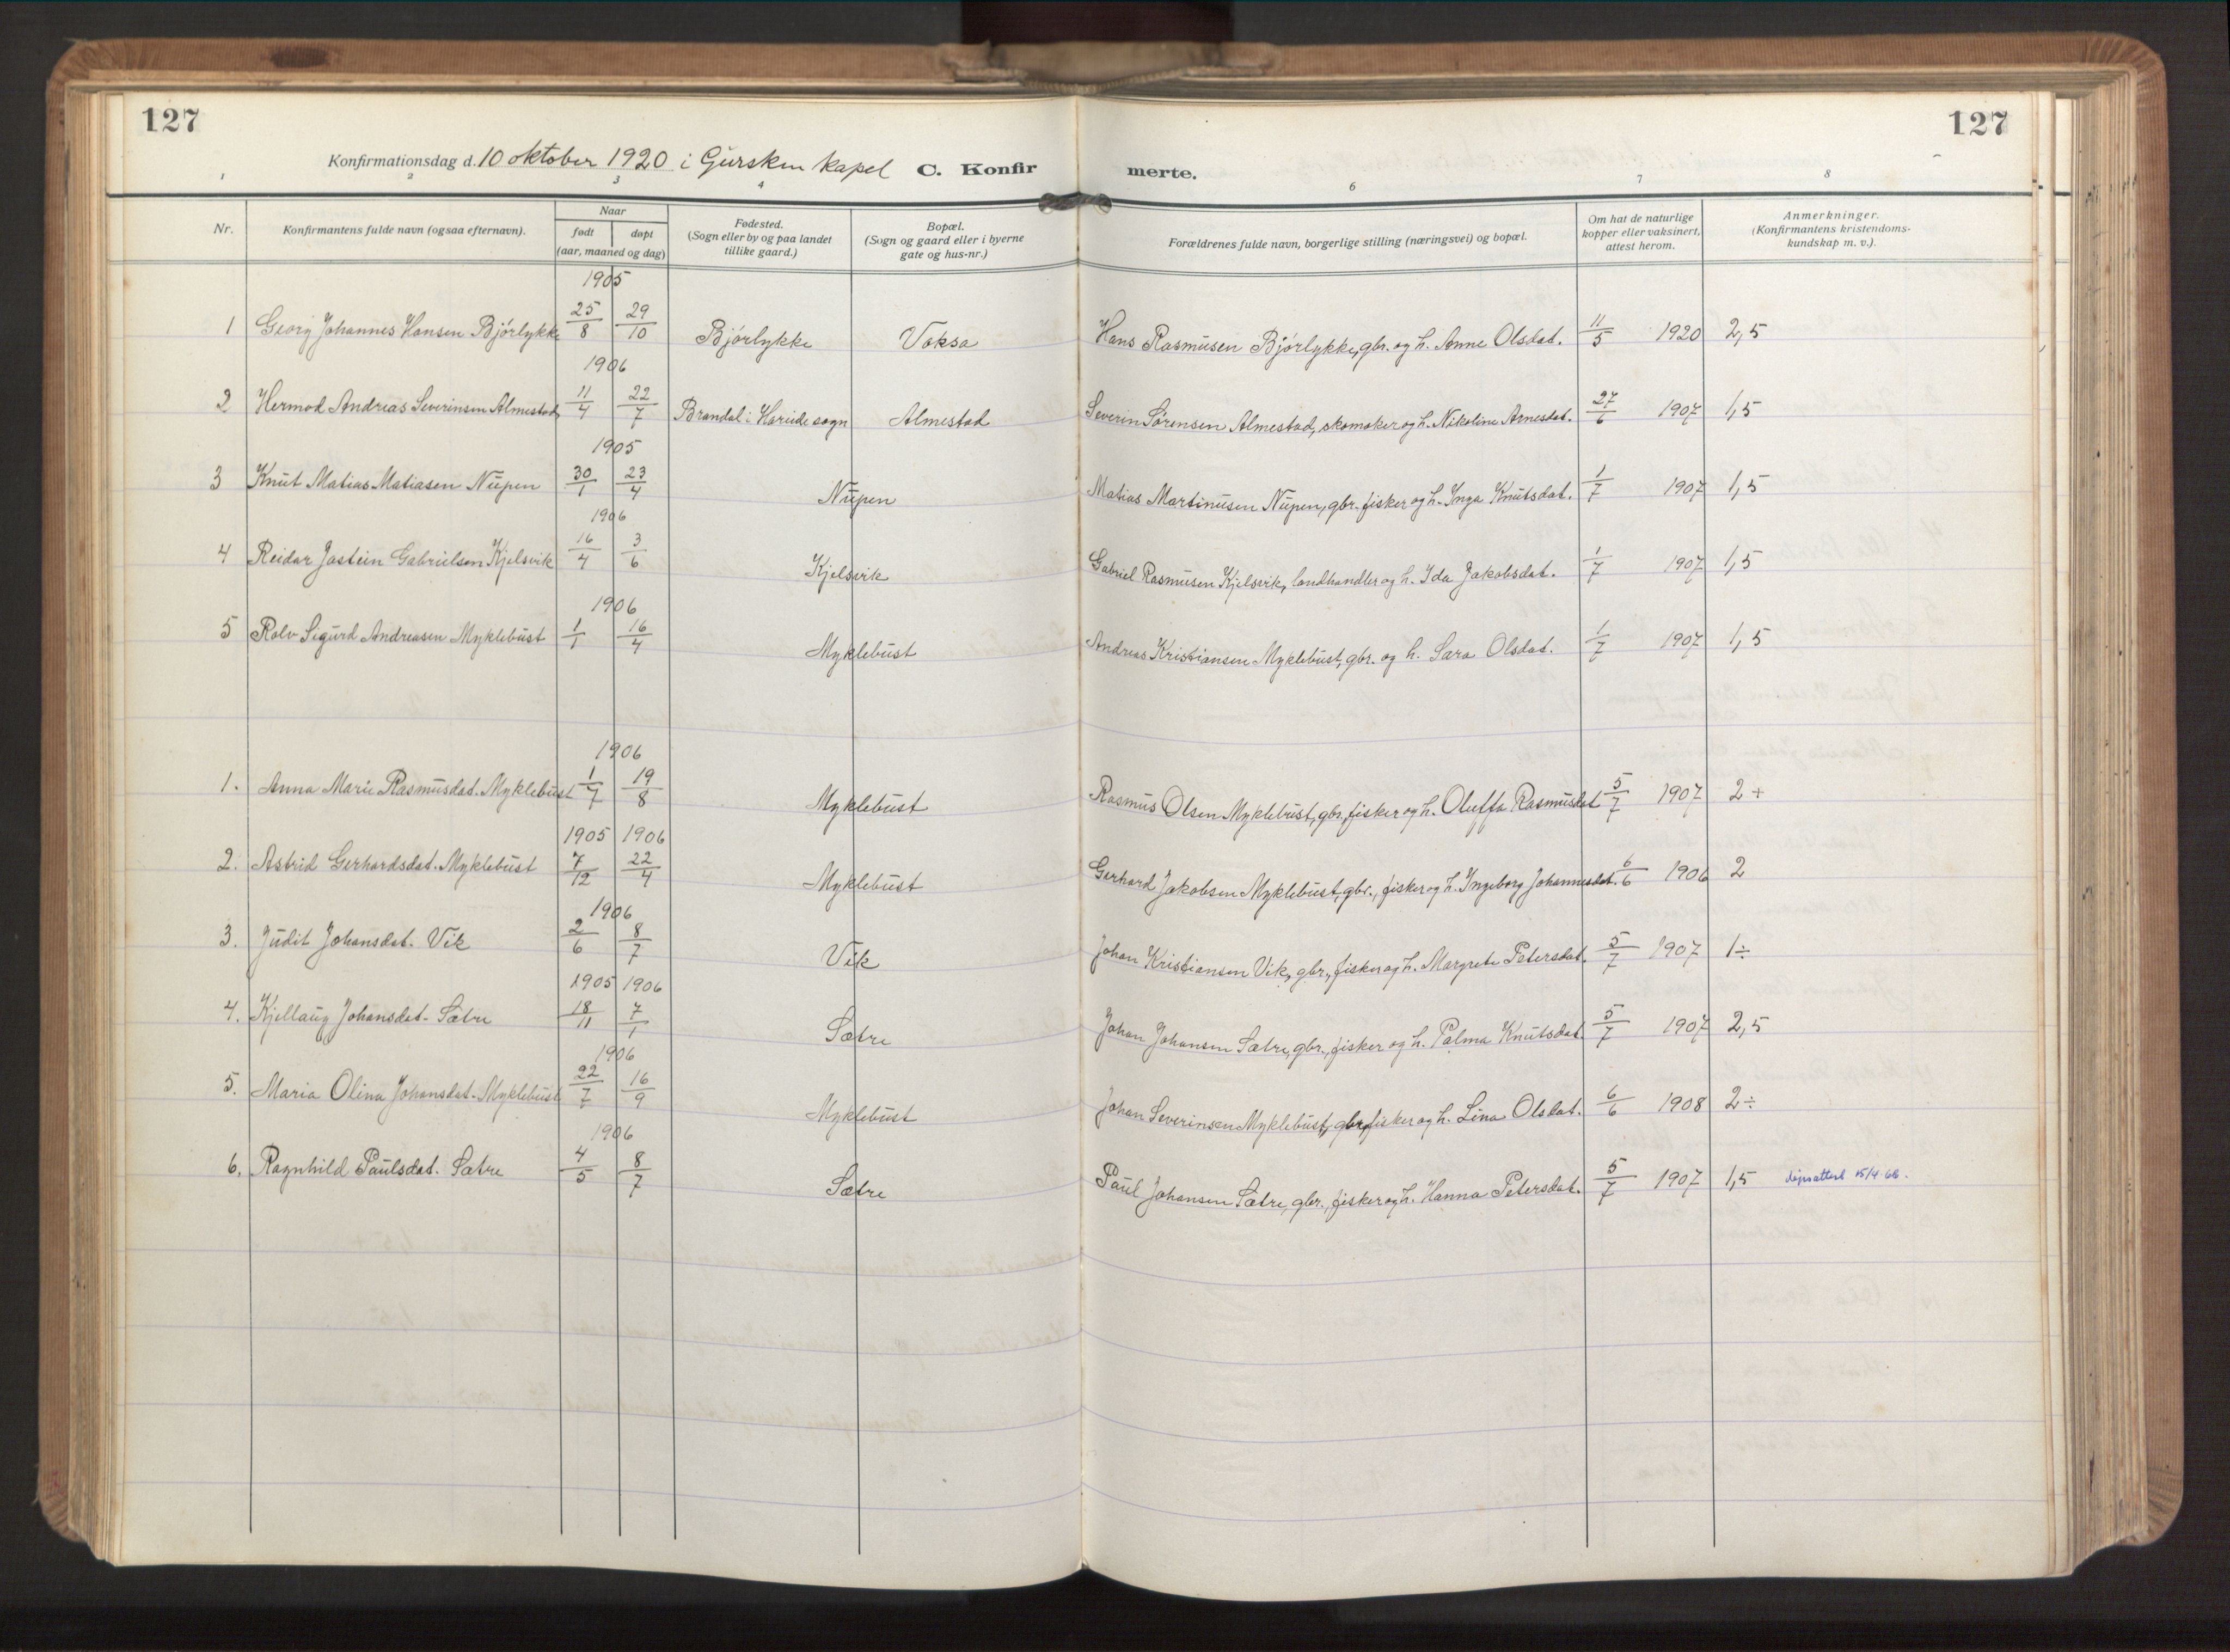 127
127
Konfirmationsdag d. 10 oktober 1920 i Gursken kapel C. Konfir merte.
1 2 3 4 6 7 8
Nr. Konfirmantens fulde navn (ogsaa efternavn). Naar født døpt (aar, maaned og dag) Fødested. (Sogn eller by og paa landet tillike gaard.) Bopæl. (Sogn og gaard eller i byerne gate og hus-nr.) Forældrenes fulde navn, borgerlige stilling (næringsvei) og bopæl. Om hat de naturlige kopper eller vaksinert, attest herom. Anmerkninger. (Konfirmantens kristendoms- kundskap m. v.).
1905
1 Georg Johannes Hansen Bjørlykke 25/8 29/10 Bjørlykke Voksa Hans Rasmusen Bjørlykke, gbr. og h. Anne Olsdat. 11/5 1920 2,5
1906
2 Hermod Andreas Severinsen Almestad 11/4 22/7 Brandal i Hareide sogn Almestad Severin Sørensen Almestad, skomaker og h. Nikoline Arnesdat. 27/6 1907 1,5
1905
3 Knut Matias Matiasen Nupen 30/1 23/4 Nupen Matias Martinusen Nupen, gbr. fisker og h. Inga Knutsdat. 1/7 1907 1,5
1906
4 Reidar Jostein Gabrielsen Kjelsvik 16/4 3/6 Kjelsvik Gabriel Rasmusen Kjelsvik, landhandler og h. Ida Jakobsdat. 1/7 1907 1,5
1906
5 Rolv Sigurd Andreasen Myklebust 1/1 16/4 Myklebust Andreas Kristiansen Myklebust, gbr. og h. Sara Olsdat. 1/7 1907 1,5
1906
1. Anna Marie Rasmusdat. Myklebust 1/7 19/8 Myklebust Rasmus Olsen Myklebust, gbr. fisker og h. Oluffa Rasmusdat 5/7 1907 2 +
1905 1906
2. Astrid Gerhardsdat. Myklebust 7/12 22/4 Myklebust Gerhard Jakobsen Myklebust, gbr., fisker og h. Ingeborg Johannesdat. 6/6 1906 2
1906
3. Judit Johansdat. Vik 2/6 8/7 Vik Johan Kristiansen Vik, gbr., fisker og h. Margrete Petersdat. 5/7 1907 1÷
1905 1906
4. Kjellaug Johansdat. Sætre 18/11 7/1 Sætre Johan Johansen Sætre, gbr., fisker og h. Palma Knutsdat. 5/7 1907 2,5
1906
5. Maria Olina Johansdat. Myklebust 22/7 16/9 Myklebust Johan Severinsen Myklebust, gbr. fisker og h. Lina Olsdat. 6/6 1908 2÷
1906
6. Ragnhild Paulsdat. Sætre 4/5 8/7 Sætre Paul Johansen Sætre, gbr., fisker og h. Hanna Petersdat. 5/7 1907 1,5 dåpsattest 15/4-66.